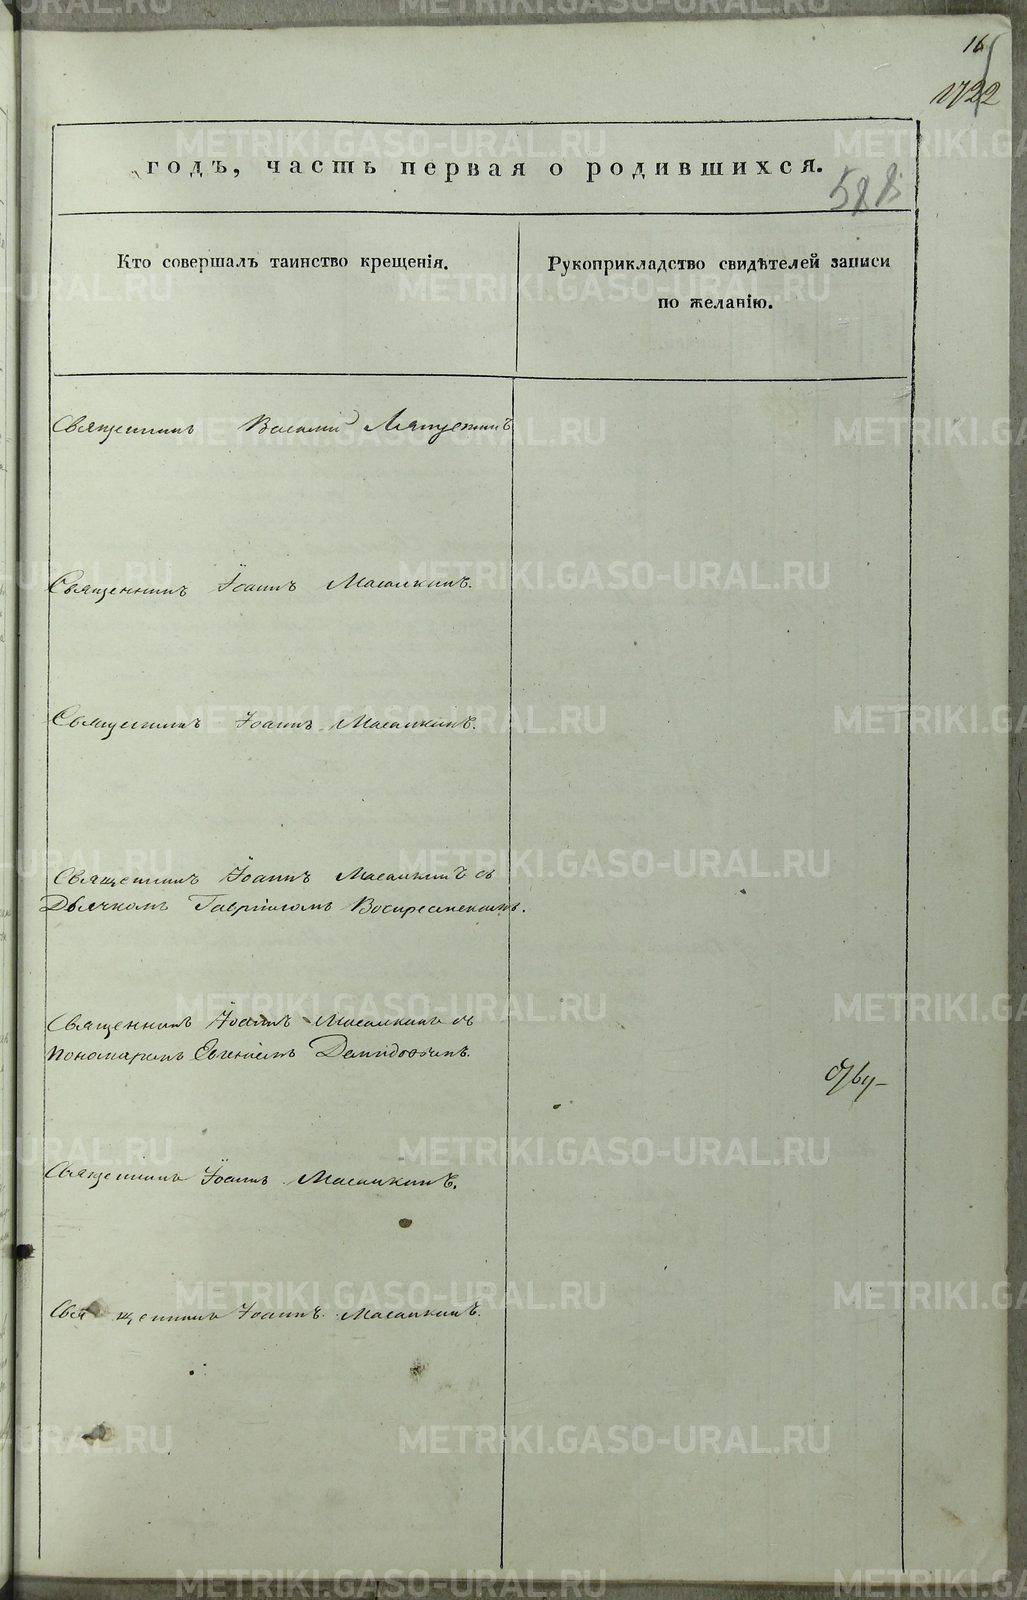 16
1722
годъ, часть первая о родившихся.
588
Кто совершалъ таинство крещенія.
Рукоприкладство свидѣтелей записи
по желанію.
Священникъ Василій Ляпустинъ
Священникъ Іоаннъ Масалкинъ.
Священникъ Іоаннъ Масалкинъ.
Священникъ Іоаннъ Масалкинъ съ
Дьячкомъ Гавріиломъ Воскресенскимъ.
Священникъ Іоаннъ Масалкинъ съ
пономаремъ Евгеніемъ Демидовымъ.
Священникъ Іоаннъ Масалкинъ.
Священникъ Іоаннъ Масалкинъ.
METRIKI.GASO-URAL.RU